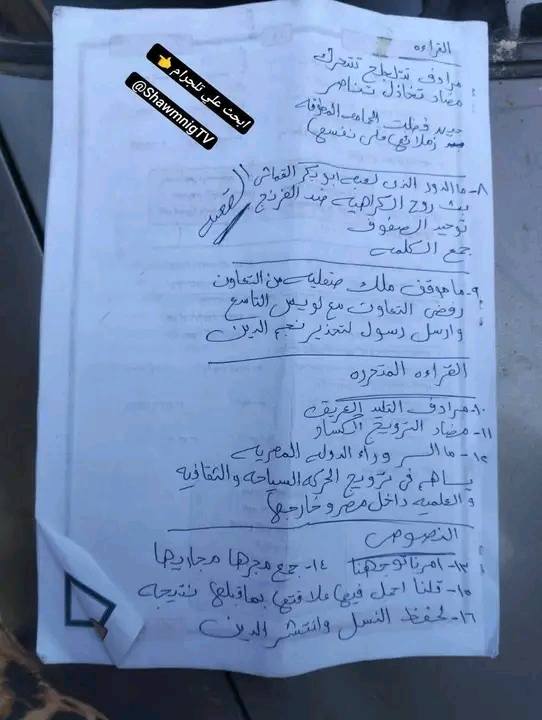 ابحث علي تلجرام 👈
@ShawmnigTV
القراءه
مرادف تتلجلج تتحرك
مضاد تخاذل تناصر
فضلت المحامى
زملائها على نفسها
٨- ما الدور الذى لعبه ابو بكر القماش (قصه)
بث روح الكراهيه ضد الفرنج
توحيد الصفوف
جمع الكلمه
٩- ما موقف ملك صقليه من التعاون
رفض التعاون مع لويس التاسع
وارسل رسول لتحذير نجم الدين
القراءه المتحرره
١٠- مرادف التليد العريق
١١- مضاد الترويج الكساد
١٢- ما السر وراء الدوله المصريه
يساهم فى ترويج الحركه السياحه والثقافيه
والعلميه داخل مصر وخارجها
النصوص
١٣- امر ناتوجهنا ١٤- جمع مجرها مجاريها
١٥- قلنا احمل فيها علاقتها بماقبلها نتيجه
١٦- لحفظ النسل وانتشر الدين